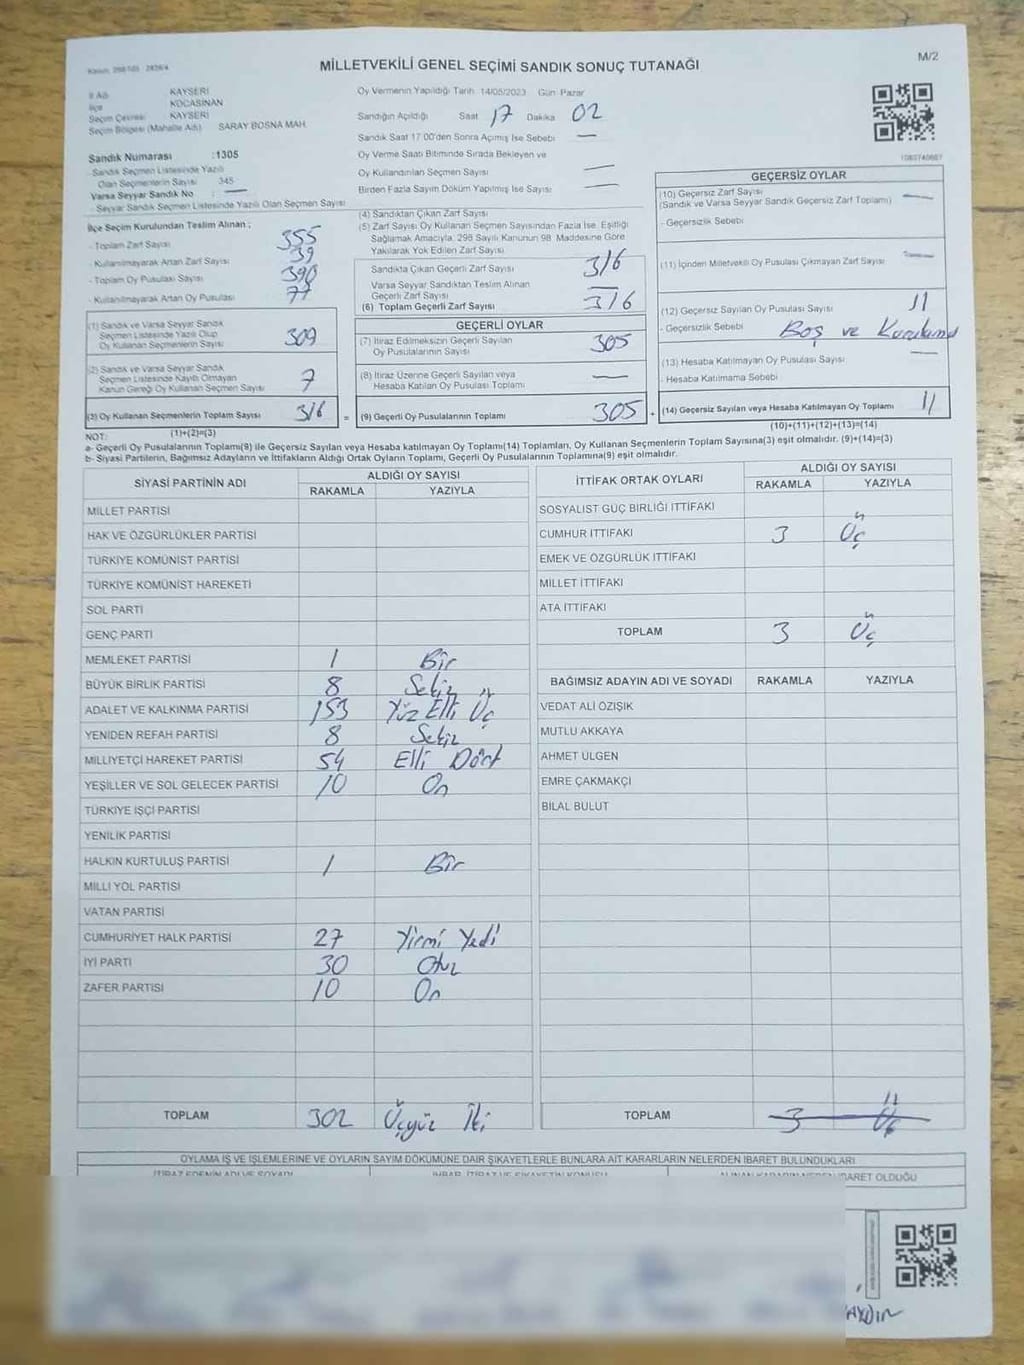 M/2
MİLLETVEKİLİ GENEL SEÇİMİ SANDIK SONUÇ TUTANAĞI
İl Adı KAYSERİ
İlçe KOCASİNAN
Seçim Çevresi KAYSERİ
Seçim Bölgesi (Mahalle Adı) SARAY BOSNA MAH.
Sandık Numarası :1305
- Sandık Seçmen Listesinde Yazılı
Olan Seçmenlerin Sayısı 345
Varsa Seyyar Sandık No : —
- Seyyar Sandık Listesinde Yazılı Olan Seçmen Sayısı
Oy Vermenin Yapıldığı Tarih 14/05/2023 Gün Pazar
Sandığın Açıldığı Saat 17 Dakika 02
Sandık Saat 17.00'den Sonra Açılmış İse Sebebi —
Oy Verme Saati Bitiminde Sırada Bekleyen ve
Oy Kullandırılan Seçmen Sayısı —
Birden Fazla Sayım Döküm Yapılmış İse Sayısı —
İlçe Seçim Kurulundan Teslim Alınan ;
- Toplam Zarf Sayısı 355
- Kullanılmayarak Artan Zarf Sayısı 39
- Toplam Oy Pusulası Sayısı 390
- Kullanılmayarak Artan Oy Pusulası 77
(1) Sandık ve Varsa Seyyar Sandık
Seçmen Listesinde Yazılı Olup
Oy Kullanan Seçmenlerin Sayısı 309
(2) Sandık ve Varsa Seyyar Sandık
Seçmen Listesinde Kayıtlı Olmayan
Kanun Gereği Oy Kullanan Seçmen Sayısı 7
(3) Oy Kullanan Seçmenlerin Toplam Sayısı 316 =
(1)+(2)=(3)
(4) Sandıktan Çıkan Zarf Sayısı
(5) Zarf Sayısı Oy Kullanan Seçmen Sayısından Fazla İse, Eşitliği
Sağlamak Amacıyla, 298 Sayılı Kanunun 98. Maddesine Göre
Yakılarak Yok Edilen Zarf Sayısı
Sandıkta Çıkan Geçerli Zarf Sayısı 316
Varsa Seyyar Sandıktan Teslim Alınan
Geçerli Zarf Sayısı —
(6) Toplam Geçerli Zarf Sayısı 316
GEÇERLİ OYLAR
(7) İtiraz Edilmeksizin Geçerli Sayılan
Oy Pusulalarının Sayısı 305
(8) İtiraz Üzerine Geçerli Sayılan veya
Hesaba Katılan Oy Pusulası Toplamı —
(9) Geçerli Oy Pusulalarının Toplamı 305 +
GEÇERSİZ OYLAR
(10) Geçersiz Zarf Sayısı —
(Sandık ve Varsa Seyyar Sandık Geçersiz Zarf Toplamı)
- Geçersizlik Sebebi
(11) İçinden Milletvekili Oy Pusulası Çıkmayan Zarf Sayısı —
(12) Geçersiz Sayılan Oy Pusulası Sayısı 11
- Geçersizlik Sebebi Boş ve
(13) Hesaba Katılmayan Oy Pusulası Sayısı —
- Hesaba Katılmama Sebebi
(14) Geçersiz Sayılan veya Hesaba Katılmayan Oy Toplamı 11
(10)+(11)+(12)+(13)=(14)
NOT:
a- Geçerli Oy Pusulalarının Toplamı(9) ile Geçersiz Sayılan veya Hesaba katılmayan Oy Toplamı(14) Toplamları, Oy Kullanan Seçmenlerin Toplam Sayısına(3) eşit olmalıdır. (9)+(14)=(3)
b- Siyasi Partilerin, Bağımsız Adayların ve İttifakların Aldığı Ortak Oyların Toplamı, Geçerli Oy Pusulalarının Toplamına(9) eşit olmalıdır.
SİYASİ PARTİNİN ADI ALDIĞI OY SAYISI
RAKAMLA YAZIYLA
MİLLET PARTİSİ
HAK VE ÖZGÜRLÜKLER PARTİSİ
TÜRKİYE KOMÜNİST PARTİSİ
TÜRKİYE KOMÜNİST HAREKETİ
SOL PARTİ
GENÇ PARTİ
MEMLEKET PARTİSİ 1 Bir
BÜYÜK BİRLİK PARTİSİ 8 Sekiz
ADALET VE KALKINMA PARTİSİ 153 Yüz Elli Üç
YENİDEN REFAH PARTİSİ 8 Sekiz
MİLLİYETÇİ HAREKET PARTİSİ 54 Elli Dört
YEŞİLLER VE SOL GELECEK PARTİSİ 10 On
TÜRKİYE İŞÇİ PARTİSİ
YENİLİK PARTİSİ
HALKIN KURTULUŞ PARTİSİ 1 Bir
MİLLİ YOL PARTİSİ
VATAN PARTİSİ
CUMHURİYET HALK PARTİSİ 27 Yirmi Yedi
İYİ PARTİ 30 Otuz
ZAFER PARTİSİ 10 On
TOPLAM 302 Üçyüz İki
İTTİFAK ORTAK OYLARI ALDIĞI OY SAYISI
RAKAMLA YAZIYLA
SOSYALİST GÜÇ BİRLİĞİ İTTİFAKI
CUMHUR İTTİFAKI 3 Üç
EMEK VE ÖZGÜRLÜK İTTİFAKI
MİLLET İTTİFAKI
ATA İTTİFAKI
TOPLAM 3 Üç
BAĞIMSIZ ADAYIN ADI VE SOYADI RAKAMLA YAZIYLA
VEDAT ALİ ÖZIŞIK
MUTLU AKKAYA
AHMET ÜLGEN
EMRE ÇAKMAKÇİ
BİLAL BULUT
TOPLAM 3 Üç
OYLAMA İŞ VE İŞLEMLERİNE VE OYLARIN SAYIM DÖKÜMÜNE DAİR ŞİKAYETLERLE BUNLARA AİT KARARLARIN NELERDEN İBARET BULUNDUKLARI
İTİRAZ EDENİN ADI VE SOYADI İHBAR, İTİRAZ VE ŞİKAYETİN KONUSU ALINAN KARARIN NEDEN İBARET OLDUĞU
AYDIN